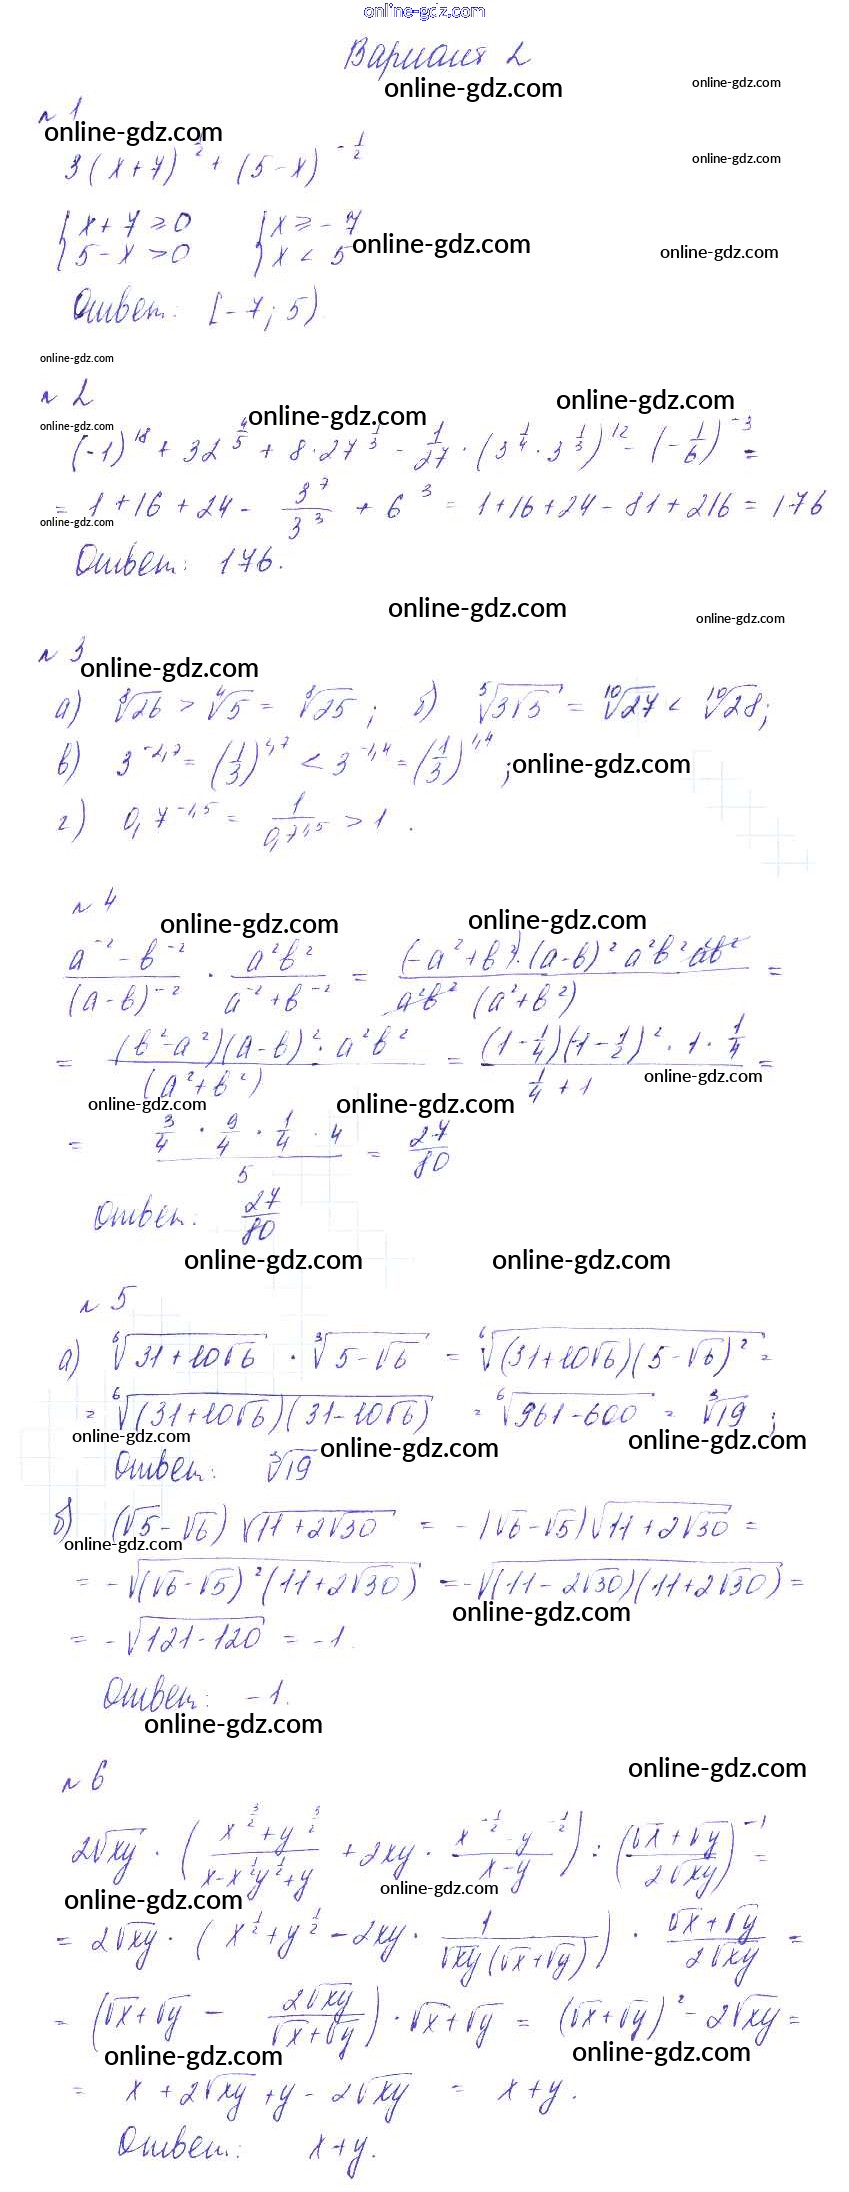 online-gdz.com
Вариант 2
online-gdz.com online-gdz.com
№ 1
online-gdz.com
3(x+7)^{1/2} + (5-x)^{-1/2} online-gdz.com
{x+7≥0 {x≥-7
{5-x>0 {x<5 online-gdz.com online-gdz.com
Ответ: [-7; 5).
online-gdz.com
№ 2 online-gdz.com
online-gdz.com online-gdz.com
(-1)^{18} + 32^{4/5} + 8·27^{1/3} - 1/27 · (3^{1/4}·3^{1/3})^{12} - (-1/6)^{-3} =
= 1+16+24 - 3^7/3^3 + 6^3 = 1+16+24-81+216 = 176
online-gdz.com
Ответ: 176.
online-gdz.com online-gdz.com
№ 3
online-gdz.com
а) ⁸√26 > ⁴√5 = ⁸√25; б) ⁵√(3√3) = ¹⁰√27 < ¹⁰√28;
в) 3^{-1,7} = (1/3)^{1,7} < 3^{-1,4} = (1/3)^{1,4}; online-gdz.com
г) 0,7^{-1,5} = 1/0,7^{1,5} > 1.
№ 4
online-gdz.com online-gdz.com
(a^{-2} - b^{-2})/(a-b)^{-2} · a²b²/(a^{-2}+b^{-2}) = (-a²+b²)·(a-b)² a²b² a²b²/(a²b² (a²+b²)) =
= (b²-a²)(a-b)²·a²b²/(a²+b²) = (1-1/4)(-1-1/2)²·1·1/4/(1/4+1) =
online-gdz.com online-gdz.com online-gdz.com
= (3/4 · 9/4 · 1/4 · 4)/5 = 27/80
Ответ: 27/80
online-gdz.com online-gdz.com
№ 5
а) ⁶√(31+10√6) · ³√(5-√6) = ⁶√((31+10√6)(5-√6)²) =
= ⁶√((31+10√6)(31-10√6)) = ⁶√(961-600) = ³√19;
online-gdz.com online-gdz.com online-gdz.com
Ответ: ³√19
б) (√5-√6) √(11+2√30) = -(√6-√5)√(11+2√30) =
online-gdz.com
= -√((√6-√5)²(11+2√30)) = -√((11-2√30)(11+2√30)) =
online-gdz.com
= -√(121-120) = -1.
Ответ: -1.
online-gdz.com
№ 6 online-gdz.com
2√xy · ((x^{3/2}+y^{3/2})/(x-x^{1/2}y^{1/2}+y) + 2xy · (x^{-1/2}-y^{-1/2})/(x-y)) : ((√x+√y)/(2√xy))^{-1} =
online-gdz.com online-gdz.com
= 2√xy · (x^{1/2}+y^{1/2} - 2xy · 1/(√xy(√x+√y))) · (√x+√y)/(2√xy) =
= (√x+√y - 2√xy/(√x+√y)) · √x+√y = (√x+√y)² - 2√xy =
online-gdz.com online-gdz.com
= x + 2√xy + y - 2√xy = x+y.
Ответ: x+y.